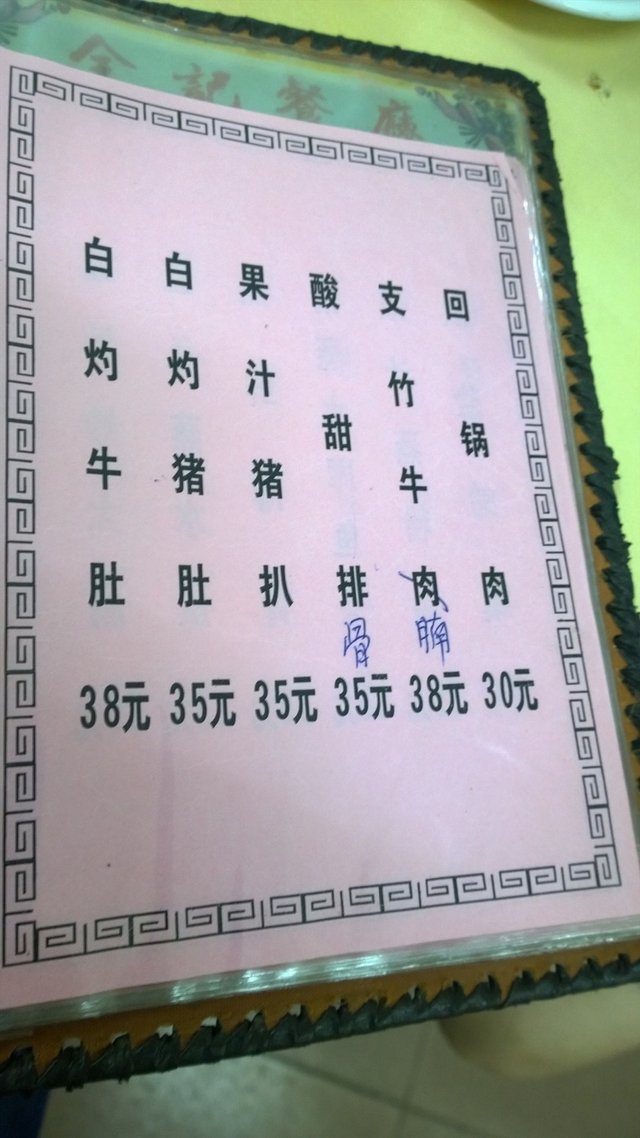 記餐廳
回锅肉 30元
支竹牛肉腩 38元
酸甜排骨 35元
果汁猪扒 35元
白灼猪肚 35元
白灼牛肚 38元